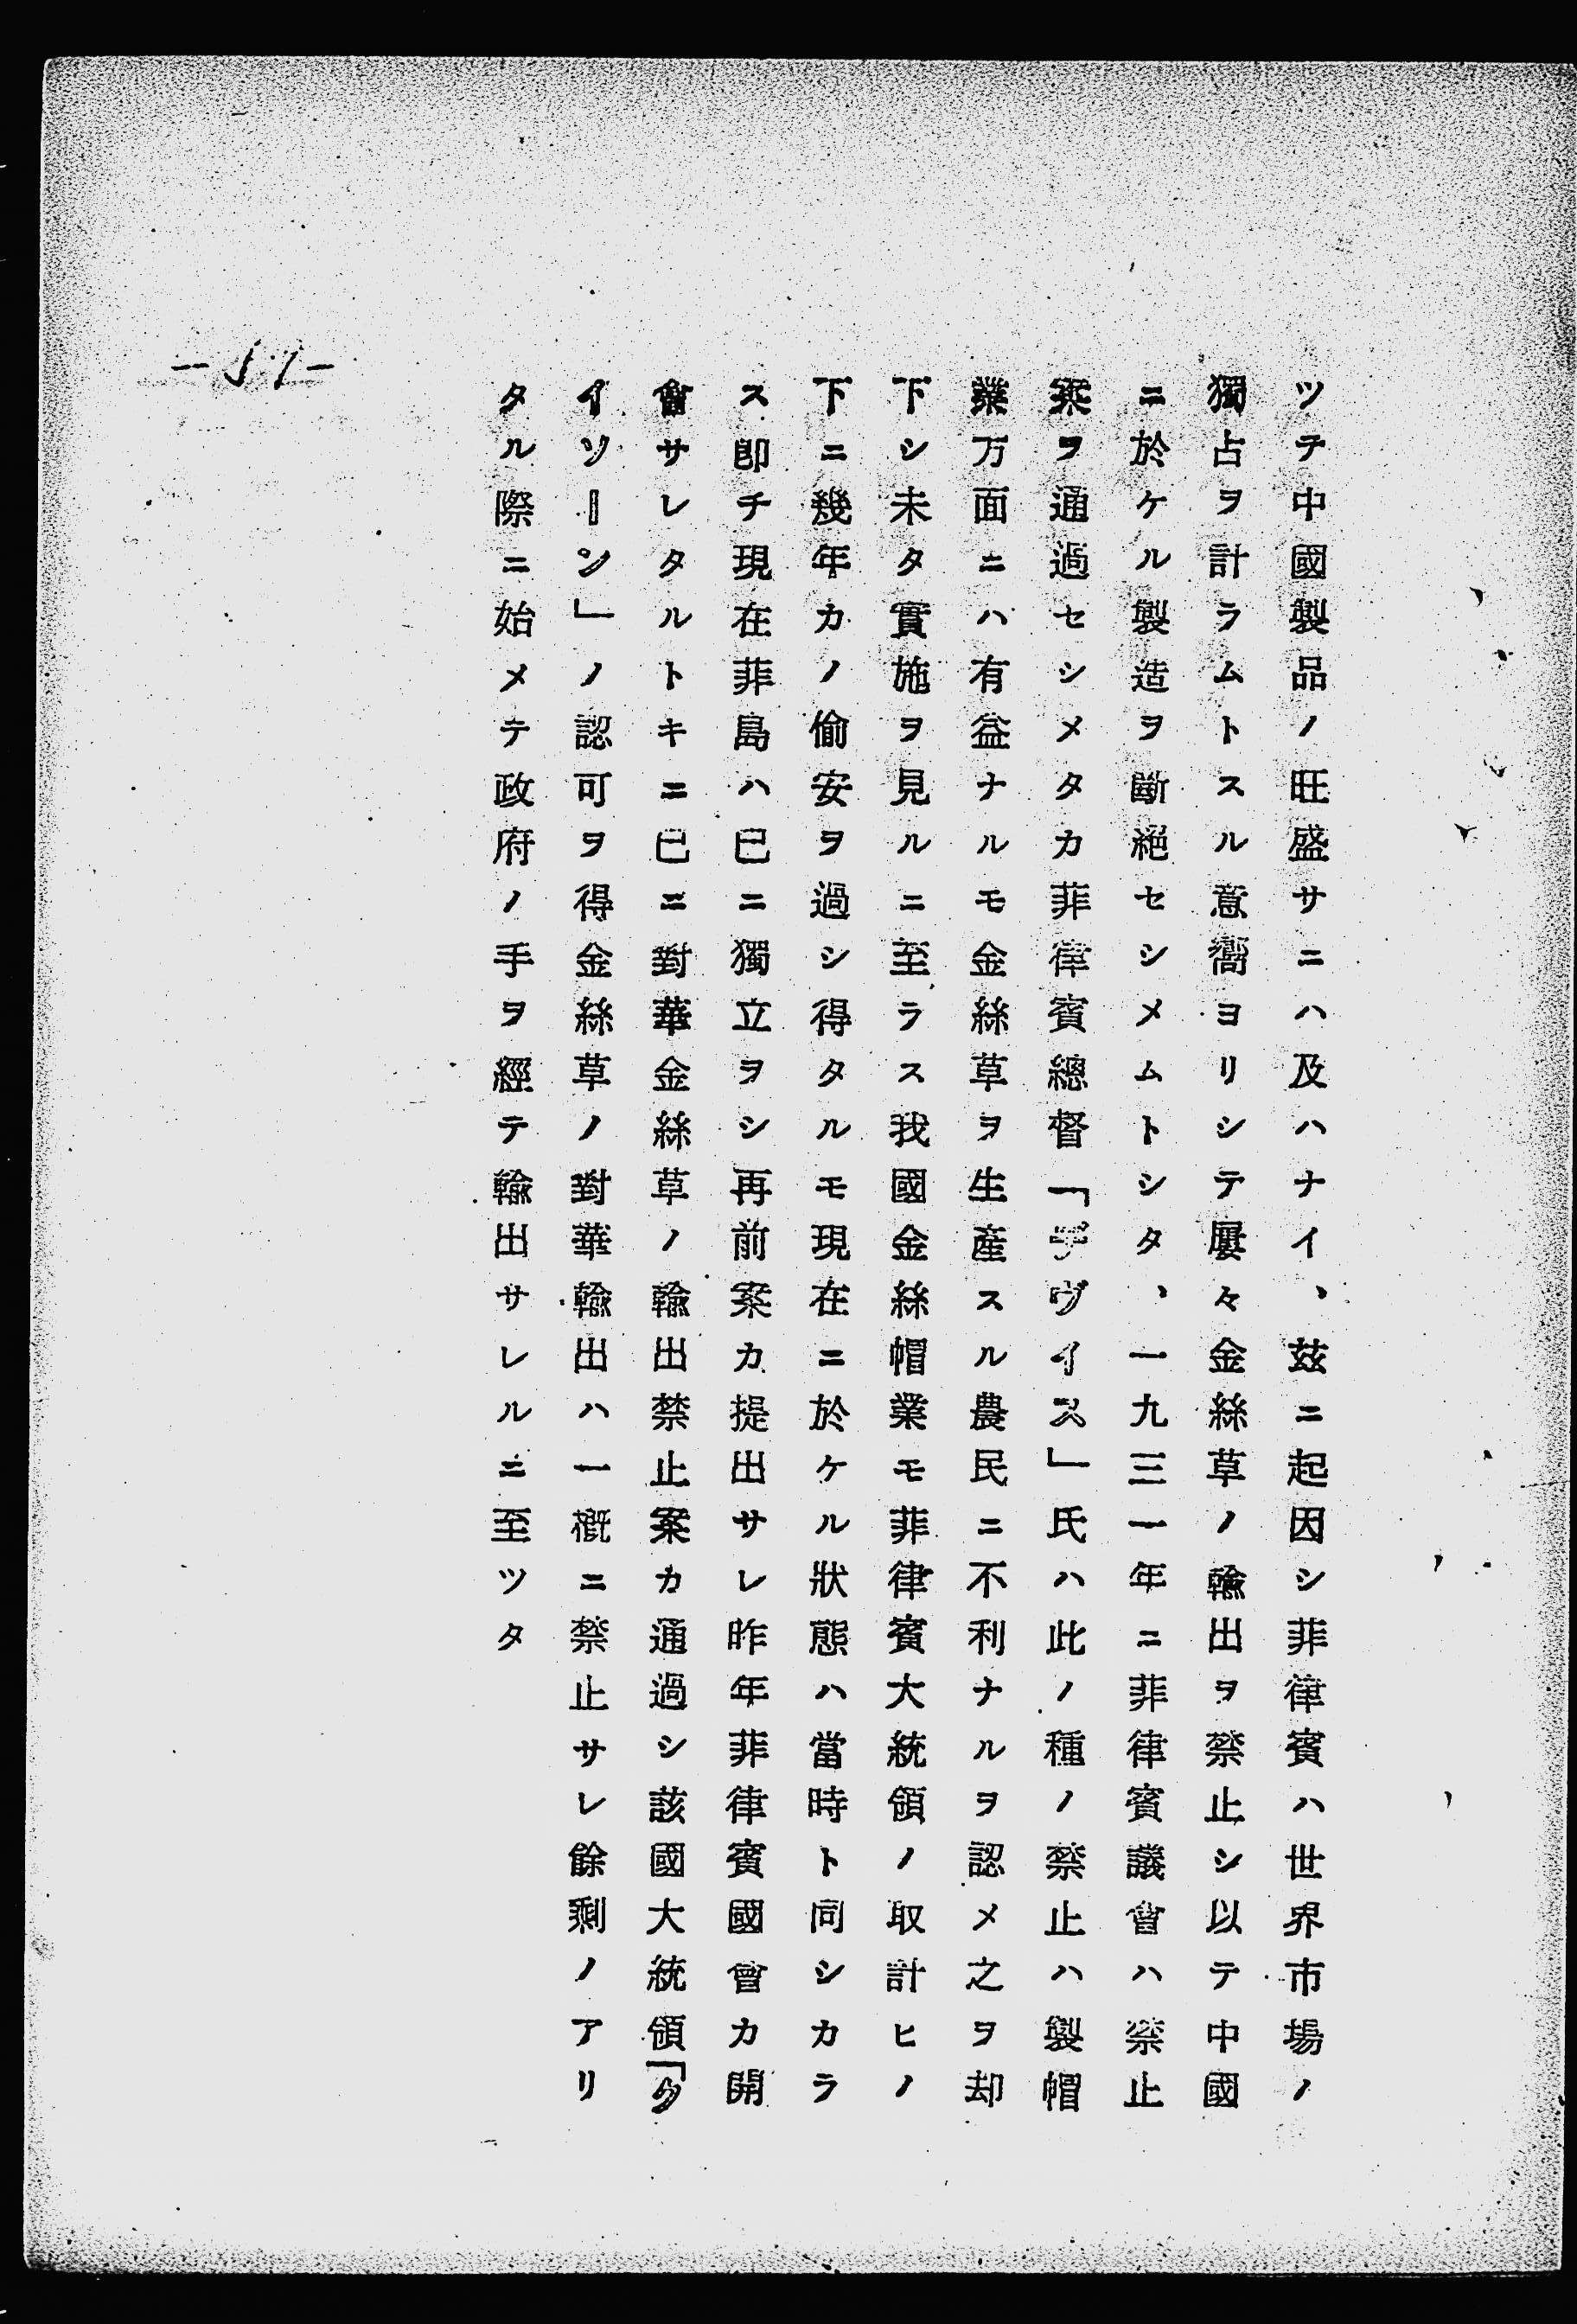 ツテ中國製品ノ旺盛サニハ及ハナイ、玆ニ起因シ菲律賓ハ世界市場ノ
獨占ヲ計ラムトスル意嚮ヨリシテ屢々金絲草ノ輸出ヲ禁止シ以テ中國
ニ於ケル製造ヲ斷絕セシメムトシタ、一九三一年ニ菲律賓議會ハ禁止
案ヲ通過セシメタカ菲律賓總督「デヴイス」氏ハ此ノ種ノ禁止ハ製帽
業万面ニハ有益ナルモ金絲草ヲ生產スル農民ニ不利ナルヲ認メ之ヲ却
下シ未タ實施ヲ見ルニ至ラス我國金絲帽業モ菲律賓大統領ノ取計ヒノ
下ニ幾年カノ偷安ヲ過シ得タルモ現在ニ於ケル狀態ハ當時ト同シカラ
ス卽チ現在菲島ハ已ニ獨立ヲシ再前案カ提出サレ昨年菲律賓國會カ開
會サレタルトキニ已ニ對華金絲草ノ輸出禁止案カ通過シ該國大統領「ク
イソーン」ノ認可ヲ得金絲草ノ對華輸出ハ一槪ニ禁止サレ餘剩ノアリ
タル際ニ始メテ政府ノ手ヲ經テ輸出サレルニ至ツタ